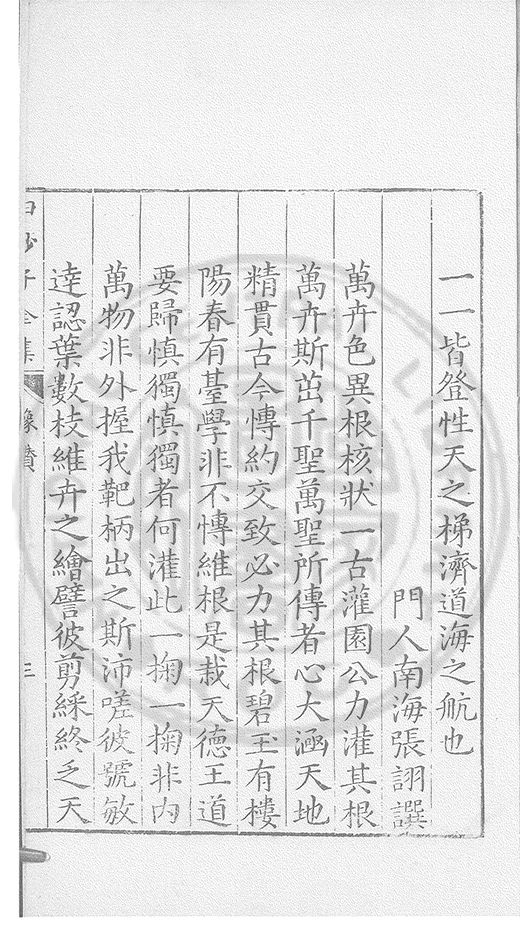 一一皆登性天之梯濟道海之航也
門人南海張詡譔
萬卉色異根核狀一古灌園公力灌其根
萬卉斯茁千聖萬聖所傳者心大涵天地
精貫古今慱約交致必力其根碧玉有樓
陽春有臺學非不慱維根是栽天德王道
要歸慎獨慎獨者何灌此一掬一掬非內
萬物非外握我靶柄出之斯沛嗟彼號敏
逹認葉數枝維卉之繪譬彼剪綵終乏天
白沙子全集
像贊
三